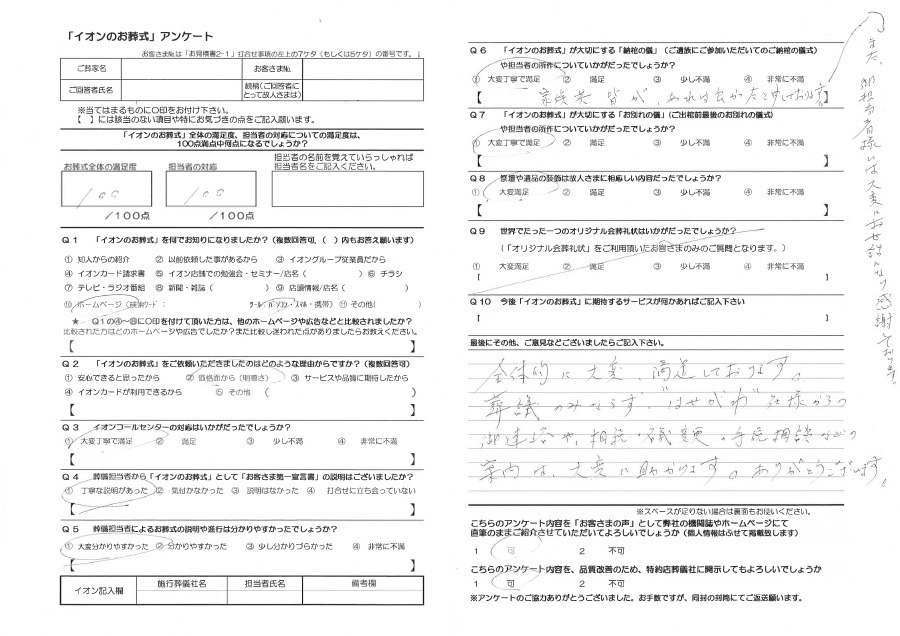 「イオンのお葬式」アンケート
お客さま№は「お見積書2-1」打合せ事項の左上の7ケタ(もしくは5ケタ)の番号です。↓
ご葬家名 お客さま№
ご回答者氏名 続柄(ご回答者に
とって故人さまは)
※当てはまるものに○印をお付け下さい。
【 】には該当のない項目や特にお気づきの点をご記入願います。
「イオンのお葬式」全体の満足度、担当者の対応についての満足度は、
100点満点中何点になるでしょうか?
お葬式全体の満足度 担当者の対応 担当者の名前を覚えていらっしゃれば
担当者名をご記入ください。
100 100
/100点 /100点
Q1 「イオンのお葬式」を何でお知りになりましたか?(複数回答可、( )内もお答え願います)
① 知人からの紹介 ② 以前依頼した事があるから ③ イオングループ従業員だから
④ イオンカード請求書 ⑤ イオン店舗での勉強会・セミナー/店名( ) ⑥ チラシ
⑦ テレビ・ラジオ番組 ⑧ 新聞・雑誌( ) ⑨ 店頭情報/店名( )
⑩ ホームページ(検索ワード: ツール:パソコン・スマホ・携帯) ⑪ その他( )
★ Q1の④~⑪に○印を付けて頂いた方は、他のホームページや広告などと比較されましたか?
比較された方はどのホームページや広告でしたか?また比較し迷われた点がありましたらお教えください。
【 】
Q2 「イオンのお葬式」をご依頼いただきましたのはどのような理由からですか?(複数回答可)
① 安心できると思ったから ② 価格面から(明瞭さ) ③ サービスや品質に期待したから
④ イオンカードが利用できるから ⑤ その他 ( )
【 】
Q3 イオンコールセンターの対応はいかがだったでしょうか?
① 大変丁寧で満足 ② 満足 ③ 少し不満 ④ 非常に不満
【 】
Q4 葬儀担当者から「イオンのお葬式」として「お客さま第一宣言書」の説明はございましたか?
① 丁寧な説明があった ② 気付かなかった ③ 説明はなかった ④ 打合せに立ち会っていない
【 】
Q5 葬儀担当者によるお葬式の説明や進行は分かりやすかったでしょうか?
① 大変分かりやすかった ② 分かりやすかった ③ 少し分かりづらかった ④ 非常に不満
【 】
イオン記入欄 施行葬儀社名 担当者氏名 備考欄
Q6 「イオンのお葬式」が大切にする「納棺の儀」(ご遺族にご参加いただいてのご納棺の儀式)
や担当者の所作についていかがだったでしょうか?
① 大変丁寧で満足 ② 満足 ③ 少し不満 ④ 非常に不満
【 家族共 皆が、あれは良かったと申しております 】
Q7 「イオンのお葬式」が大切にする「お別れの儀」(ご出棺前最後のお別れの儀式)
や担当者の所作についていかがだったでしょうか?
① 大変丁寧で満足 ② 満足 ③ 少し不満 ④ 非常に不満
【 】
Q8 祭壇や遺品の装飾は故人さまに相応しい内容だったでしょうか?
① 大変満足 ② 満足 ③ 少し不満 ④ 非常に不満
【 】
Q9 世界でたった一つのオリジナル会葬礼状はいかがだったでしょうか?
(「オリジナル会葬礼状」をご利用頂いたお客さまのみのご質問となります。)
① 大変満足 ② 満足 ③ 少し不満 ④ 非常に不満
【 】
Q10 今後「イオンのお葬式」に期待するサービスが何かあればご記入下さい
【 】
最後にその他、ご意見などございましたらご記入下さい。
全体的に大変、満足しております。
葬議のみならず、"はせがわ"社様からの
御連絡や、相続・変更の手続相談などの
案内は、大変に助かります。ありがとうございます。
また、御担当者様には大変にお世話になり感謝しております。
※スペースが足りない場合は裏面もお使いください。
こちらのアンケート内容を「お客さまの声」として弊社の機関誌やホームページにて
直筆のままご紹介させていただいてよろしいでしょうか(個人情報はふせて掲載致します)
1 可 2 不可
こちらのアンケート内容を、品質改善のため、特約店葬儀社に開示してもよろしいでしょうか
1 可 2 不可
※アンケートのご協力ありがとうございました。お手数ですが、同封の封筒にてご返送願います。